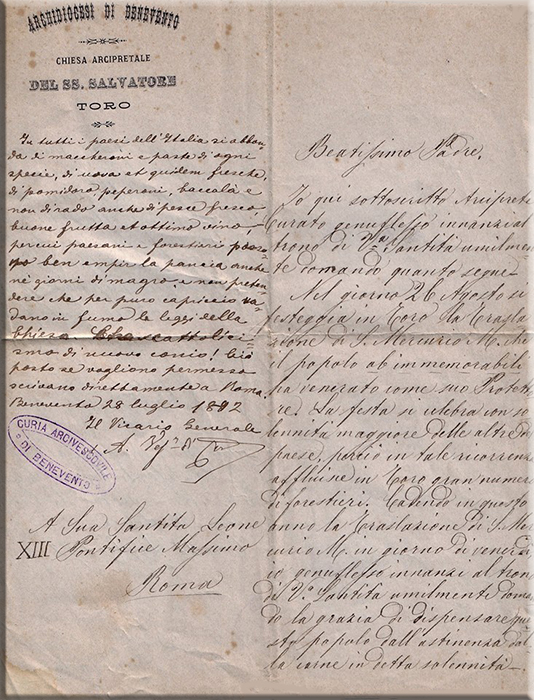 ARCHIDIOCESI DI BENEVENTO
CHIESA ARCIPRETALE
DEL SS. SALVATORE
TORO
In tutti i paesi dell'Italia si abbon
da di maccheroni e paste di ogni
specie, di uova et quidem fresche,
di pomidoro, peperoni, baccalà e
non di rado anche di pesce fresco,
buone frutta et ottimo vino,
percui paesani e forestieri posso
no ben empir la pancia anche
nei giorni di magro e non preten
dere che per puro capriccio va
dano in fumo le leggi della
Chiesa. Che cattolici
smo di nuovo conio! Ciò
posto se vogliono permesso
scrivano direttamente a Roma.
Benevento 28 luglio 1892
Il Vicario Generale
A.
CURIA ARCIVESCOVILE
DI BENEVENTO
A Sua Santità Leone
XIII Pontefice Massimo
Roma
Beatissimo Padre,
Io qui sottoscritto Arciprete
Curato genuflesso innanzi al
trono di Va Santità umilmen
te domando quanto segue
Nel giorno 26 Agosto si
festeggia in Toro la Traslazio
di S. Mercurio M. che
il popolo ab immemorabili
ha venerato come suo Protetto
re. La festa si celebra con so
lennità maggiore delle altre del
paese, perciò in tale ricorrenza
affluisce in Toro gran numero
di forestieri. Cadendo in questo
anno la Traslazione di S. Mer
curio M. in giorno di venerdì
io genuflesso innanzi al trono
di Va Santità umilmente doman
do la grazia di dispensare que
sto popolo dall'astinenza dal
la carne in detta solennità